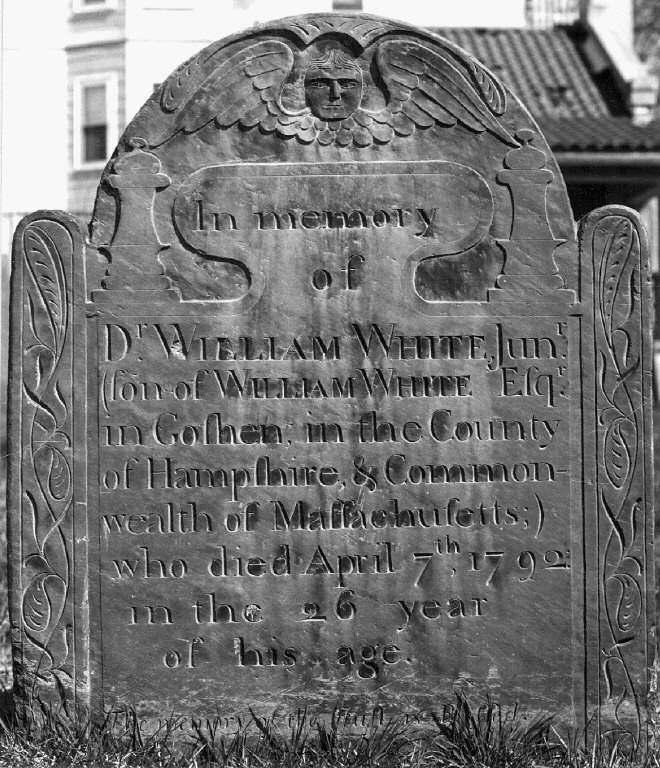 In memory
of
Dʳ. WILLIAM WHITE, Junʳ.
(ſon of WILLIAM WHITE Eſqʳ.
in Goſhen; in the County
of Hampſhire, & Common-
wealth of Maſſachuſetts;)
who died April 7ᵗʰ, 1792
in the 26 year
of his age.
The memory of the Juſt is Bleſſed.